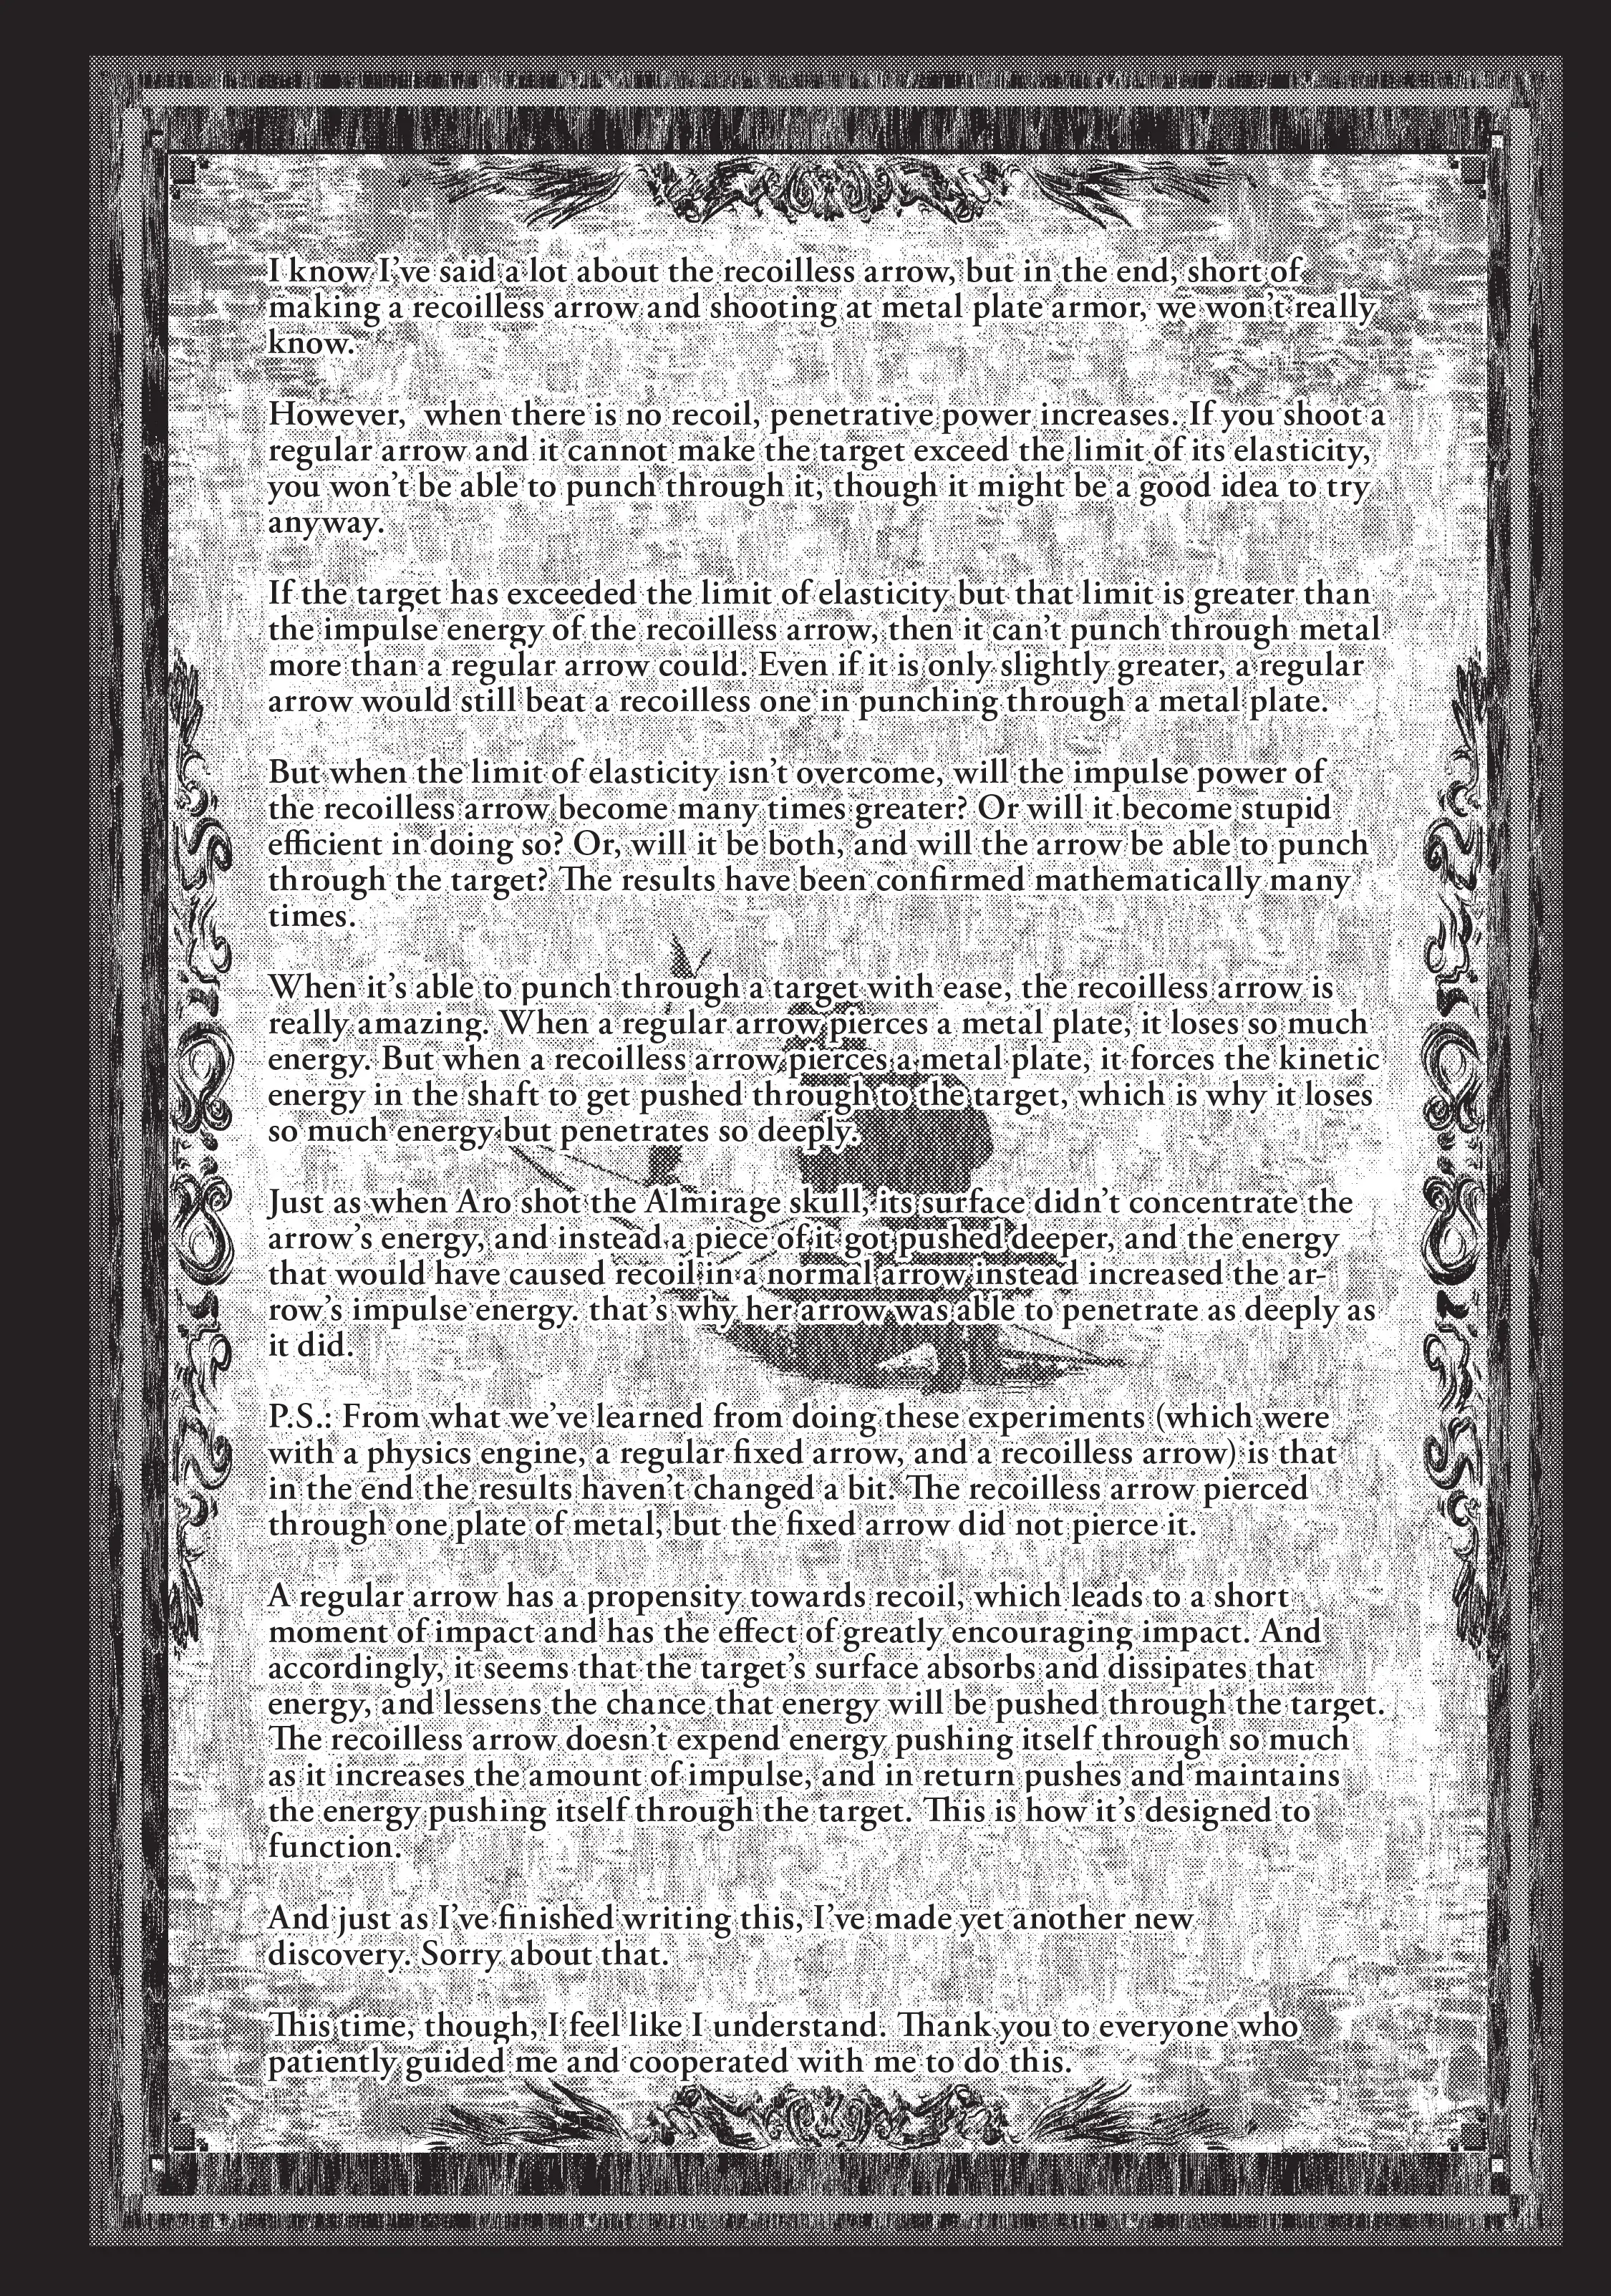 I know I've said a lot about the recoilless arrow, but in the end, short of
making a recoilless arrow and shooting at metal plate armor, we won't really
know.
However,  when there is no recoil, penetrative power increases. If you shoot a
regular arrow and it cannot make the target exceed the limit of its elasticity,
you won't be able to punch through it, though it might be a good idea to try
anyway.
If the target has exceeded the limit of elasticity but that limit is greater than
the impulse energy of the recoilless arrow, then it can't punch through metal
more than a regular arrow could. Even if it is only slightly greater, a regular
arrow would still beat a recoilless one in punching through a metal plate.
But when the limit of elasticity isn't overcome, will the impulse power of
the recoilless arrow become many times greater? Or will it become stupid
efficient in doing so? Or, will it be both, and will the arrow be able to punch
through the target? The results have been confirmed mathematically many
times.
When it's able to punch through a target with ease, the recoilless arrow is
really amazing. When a regular arrow pierces a metal plate, it loses so much
energy. But when a recoilless arrow pierces a metal plate, it forces the kinetic
energy in the shaft to get pushed through to the target, which is why it loses
so much energy but penetrates so deeply.
Just as when Aro shot the Almirage skull, its surface didn't concentrate the
arrow's energy, and instead a piece of it got pushed deeper, and the energy
that would have caused recoil in a normal arrow instead increased the ar-
row's impulse energy. that's why her arrow was able to penetrate as deeply as
it did.
P.S.: From what we've learned from doing these experiments (which were
with a physics engine, a regular fixed arrow, and a recoilless arrow) is that
in the end the results haven't changed a bit. The recoilless arrow pierced
through one plate of metal, but the fixed arrow did not pierce it.
A regular arrow has a propensity towards recoil, which leads to a short
moment of impact and has the effect of greatly encouraging impact. And
accordingly, it seems that the target's surface absorbs and dissipates that
energy, and lessens the chance that energy will be pushed through the target.
The recoilless arrow doesn't expend energy pushing itself through so much
as it increases the amount of impulse, and in return pushes and maintains
the energy pushing itself through the target. This is how it's designed to
function.
And just as I've finished writing this, I've made yet another new
discovery. Sorry about that.
This time, though, I feel like I understand. Thank you to everyone who
patiently guided me and cooperated with me to do this.